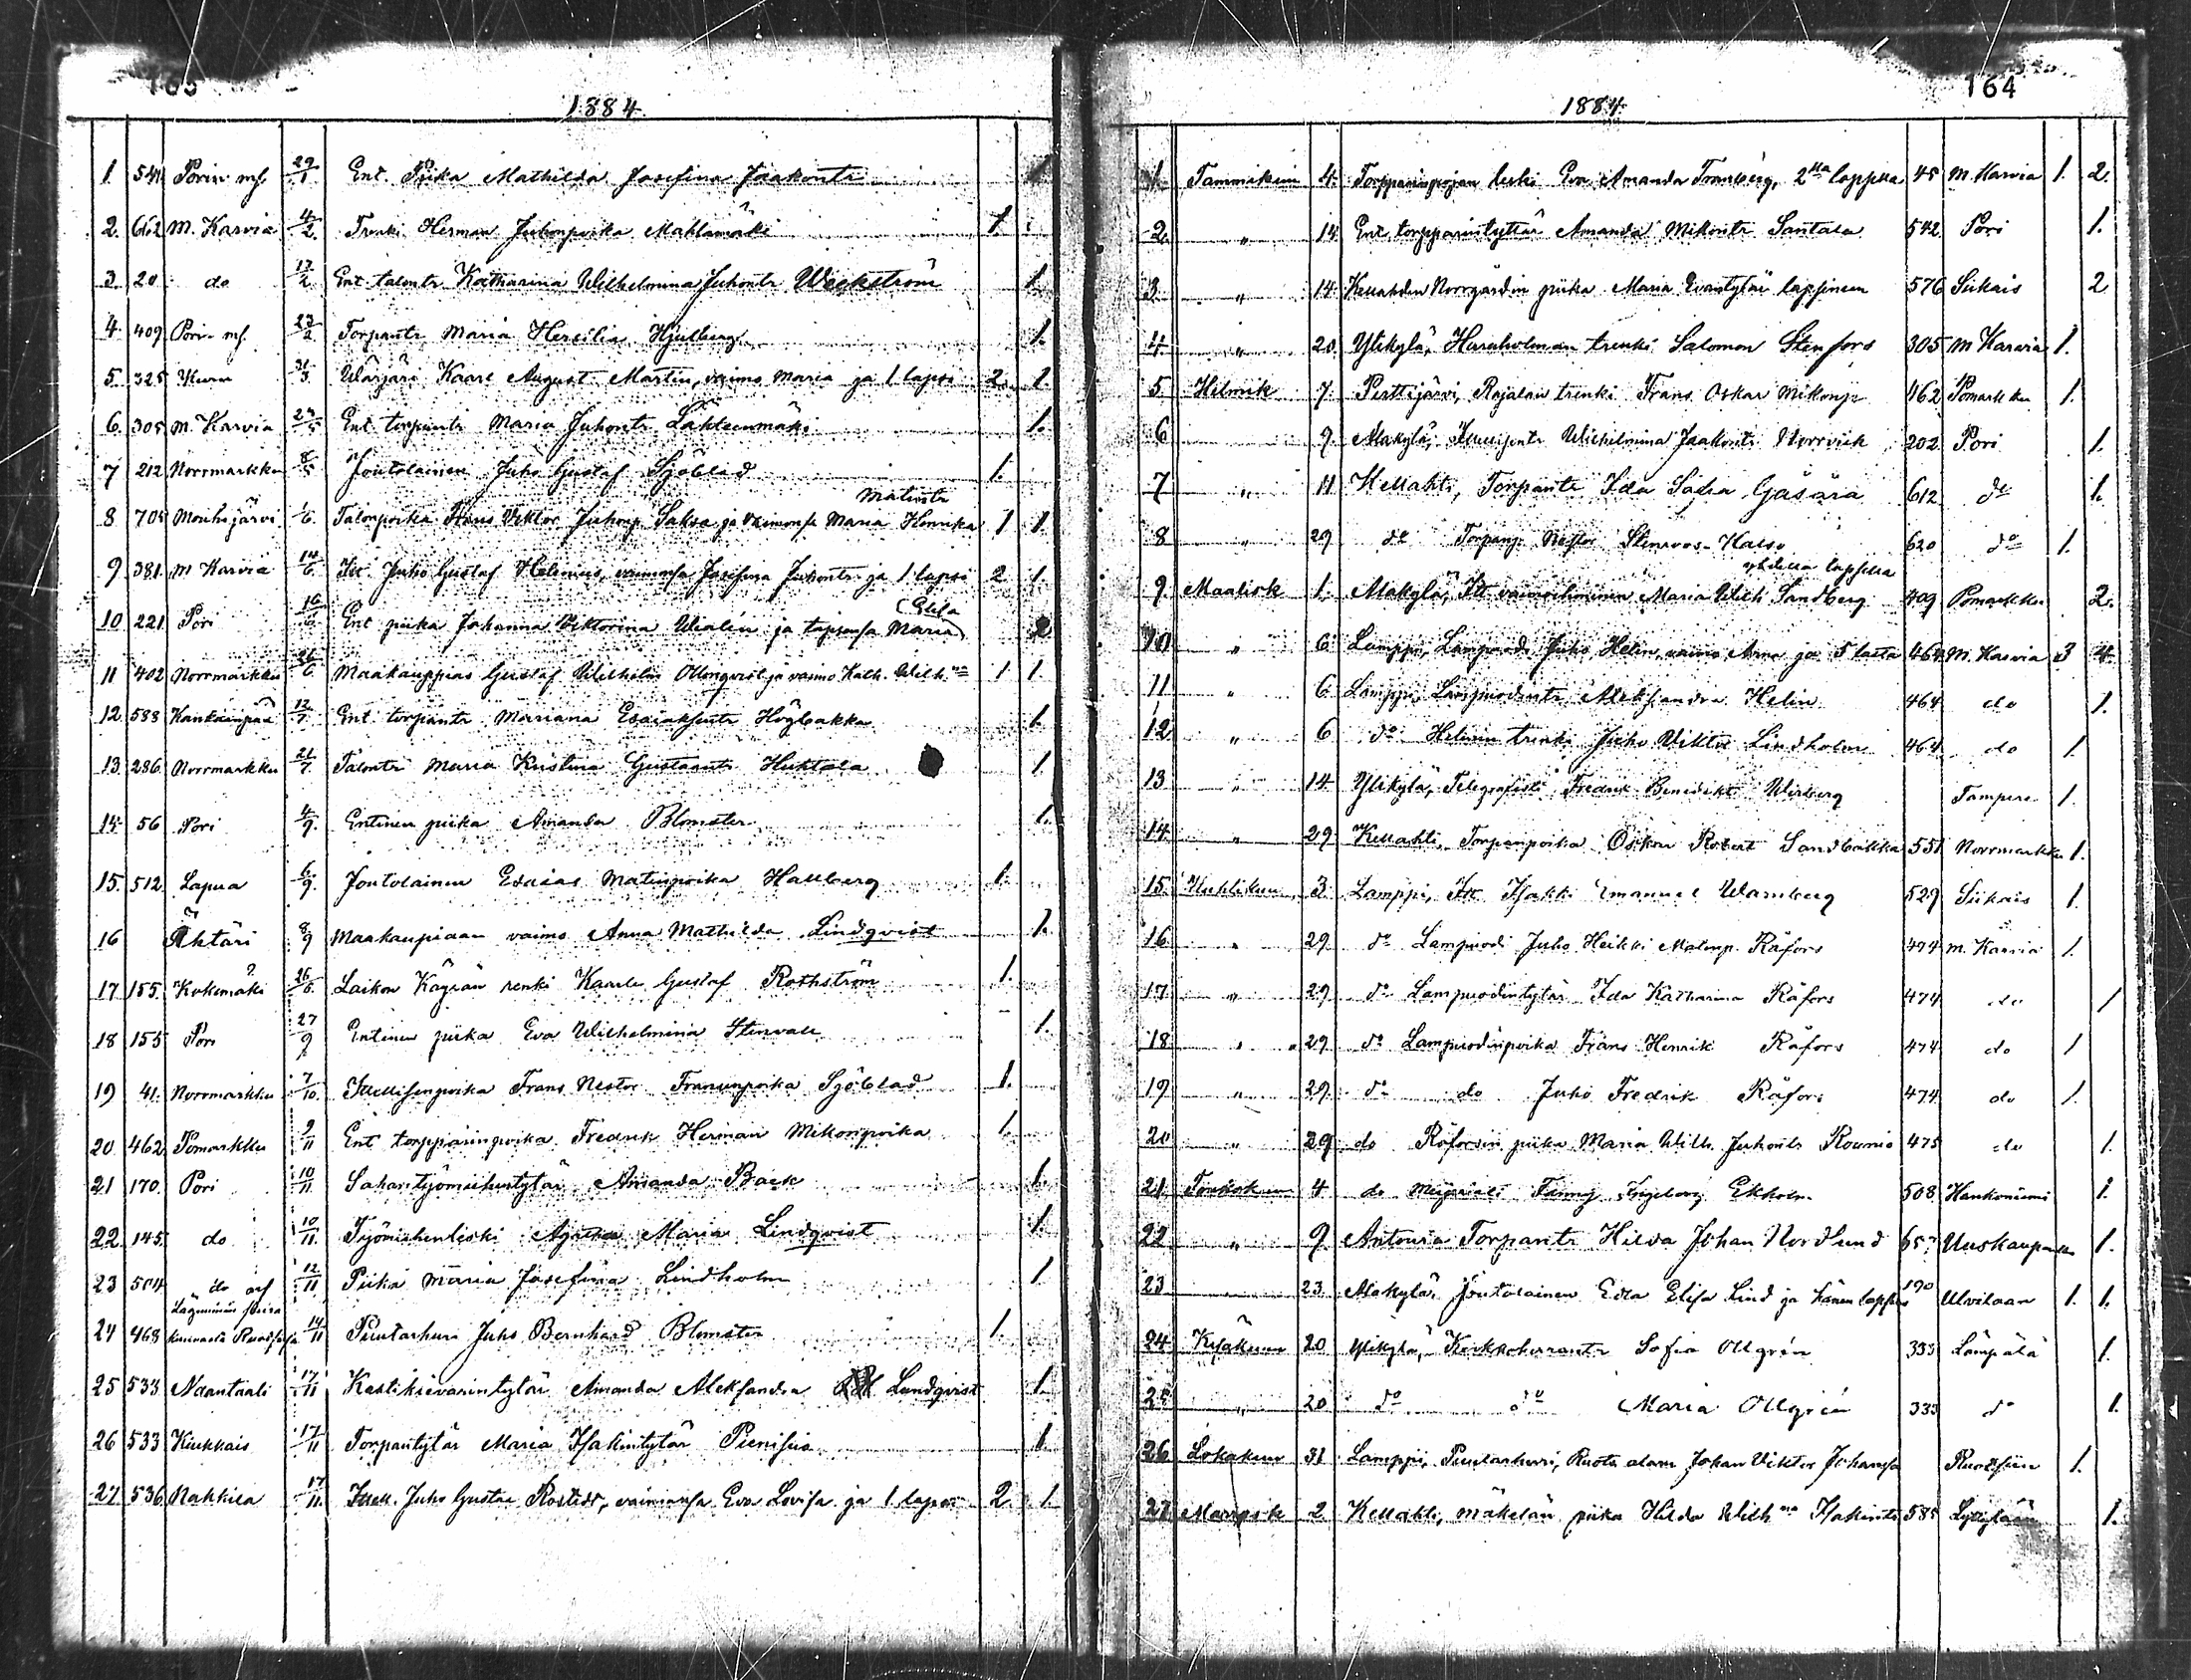 165
1884.
1. 541 Porin mf. 29/1 Ent. Piika Mathilda Josefina Jaakontr 1
2. 662 M. Karvia 4/2 Trenki Herman Juhonpoika Mahlamäki 1.
3. 20 do 17/2 Ent. talontr Katharina Wilhelmina Juhontr Weckström 1.
4. 409 Porin mf. 23/2 Torpantr Maria Hersilia Hjulberg 1.
5. 325 31/3 Wärjäri Kaarl August Martin, vaimo Maria ja 1 lapsi 2. 1.
6. 305 M. Karvia Ent torpantr Maria Juhontr Lähteenmäki 1.
7 212 Norrmarkku 8/5 Joutolainen Juho Gustaf Sjöblad 1.
Matintr
8 705 Mouhijärvi 1/6. Talonpoika Frans Viktor Juhonp. Saksa ja vaimonsa Maria Henrika 1 1.
9 381. M Karvia 14/6. Itc. Juho Gustaf Helenius, vaimonsa Josefina Juhontr ja 1 lapsi 2 1.
(Edla
10 221 Pori 16/6 Ent piika Johanna Viktorina Walin ja lapsensa Maria) 2
11 402 Norrmarkku 26/6 Maakauppias Gustaf Wilhelm Ollonqvist ja vaimo Kath. Wilh.na 1 1.
12 588 Kankaanpää 12/7. Ent. torpantr Mariana Esaiaksentr Högbakka 1.
13. 286 Norrmarkku 21/7. Talontr Maria Kristina Gustaantr Huhtala 1.
14. 56 Pori 4/9. Entinen piika Amanda Blomster 1.
15. 512. Lapua 6/9. Joutolainen Esaias Matinpoika Hallberg 1.
16 Ähtäri 8/9 Maakaupiaan vaimo Anna Mathilda Lindqvist 1.
17 155. Kokemäki 26/5. Laikon Kägrän renki Kaarle Gustaf Rothström 1.
18 155 Pori 27/9 Entinen piika Eva Wilhelmina Stenvall 1.
19 41. Norrmarkku 7/10. Itsellisenpoika Frans Nestor Fransunpoika Sjöblad 1.
20 462. Pomarkku 9/11 Ent torpparinpoika Fredrik Herman Mikonpoika 1.
21 170. Pori 10/11 Sahantyömiehentytär Amanda Back 1.
22. 145. do 10/11. Työmiehenleski Agatha Maria Lindqvist 1.
23 504 do 12/11 Piika Maria Josefina Lindholm 1
24 468 14/11 Puutarhuri Juho Bernhard Blomster 1.
25 533 Naantali 17/11 Kestikievarintytär Amanda Aleksandra Lundqvist 1.
26 533 Kiukkais 17/11 Torpantytär Maria Isakintytär 1.
27 536 Nakkila 17/11. Itsell. Juho Gustaa Rostedt, vaimonsa Eva Lovisa ja 1 lapsi 2. 1.
164
1884.
1. Tammikuun 4. Torpparinpojan leski Eva Amanda Tranberg, 2sta lappua 45 M. Karvia 1. 2.
2. " 14 Ent. torpparintyttär Amanda Mikontr Santala 542 Pori 1.
3. " 14 Kellahden Norrgårdin piika Maria Evantytär lapsineen 576 Siikais 2
4. " 20 Ylikylä, Haraholman trenki Salomon Stenfors 305 M Karvia 1.
5 Helmik 7. Perttijärvi, Rajalan trenki Frans Oskar Mikonp 462 Pomarkku 1.
6 9. Alakylä, Wilhelmina Jaakontr Norrvik 202 Pori 1.
7 " 11 Kellahti, Torpantr Ida Sofia Gåsöra 612 do 1.
8 " 29 do Torpanp. Nestor Stenroos-Halso 620 do 1.
yhdellä lapsella
9 Maalisk 1. Alakylä, Itc vaimoihminen Maria Wilh Sandberg 409 Pomarkku 2.
10 " 6 Lamppi, Lampuodi Juho Helin, vaimo Anna ja 5 lasta 464 M. Karvia 3 4.
11 " 6 Lamppi, Lampuodintr Aleksandra Helin 464 do 1.
12 " 6 do Helinin trenki Juho Viktor Lindholm 464 do 1
13 " 14 Ylikylä, Telegrafisti Fredrik Benedikt Wirberg Tampere 1.
14 " 29 Kellahti, Torpanpoika Oskar Robert Sandbakka 551 Norrmarkku 1.
15. Huhtikuu 3 Lamppi, Itc Isakki Emanuel Warnberg 529 Siikais 1.
16 " 29 do Lampuodi Juho Heikki Malmp. Råfors 474 M. Karvia 1.
17 " 29 do Lampuodintytär Ida Katharina Råfors 474 do 1
18 " 29. do Lampuodinpoika Frans Henrik Råfors 474 do 1
19 " 29. do do Juho Fredrik Råfors 474 do 1.
20 " 29 do Råforsin piika Maria Wilh. Juhontr Roumio 475 do 1.
21. Toukokuu 4 do Fanny Ingeborg Ekholm 508 Hankoniemi 1.
22 " 9. Antoora Torpantr Hilda Johan Nordlund Uuskaupunki 1.
23 23. Alakylä, Joutolainen Edla Elisa Lind ja hänen lapsensa 190 Ulvilaan 1. 1.
24 Kesäkuun 20 Ylikylä, Kirkkoherrantr Sofia Ollgrén 333 Lempälä 1.
25 " 20 do do Maria Ollgrén 333 do 1.
26 Lokakuu 31 Lamppi, Puutarhuri, Ruots. alam. Johan Viktor Johansso Ruotsiin 1.
27 Marrask 2 Kellahti, Mäkelän piika Hilda Wilh.na Isakintr 585 1.